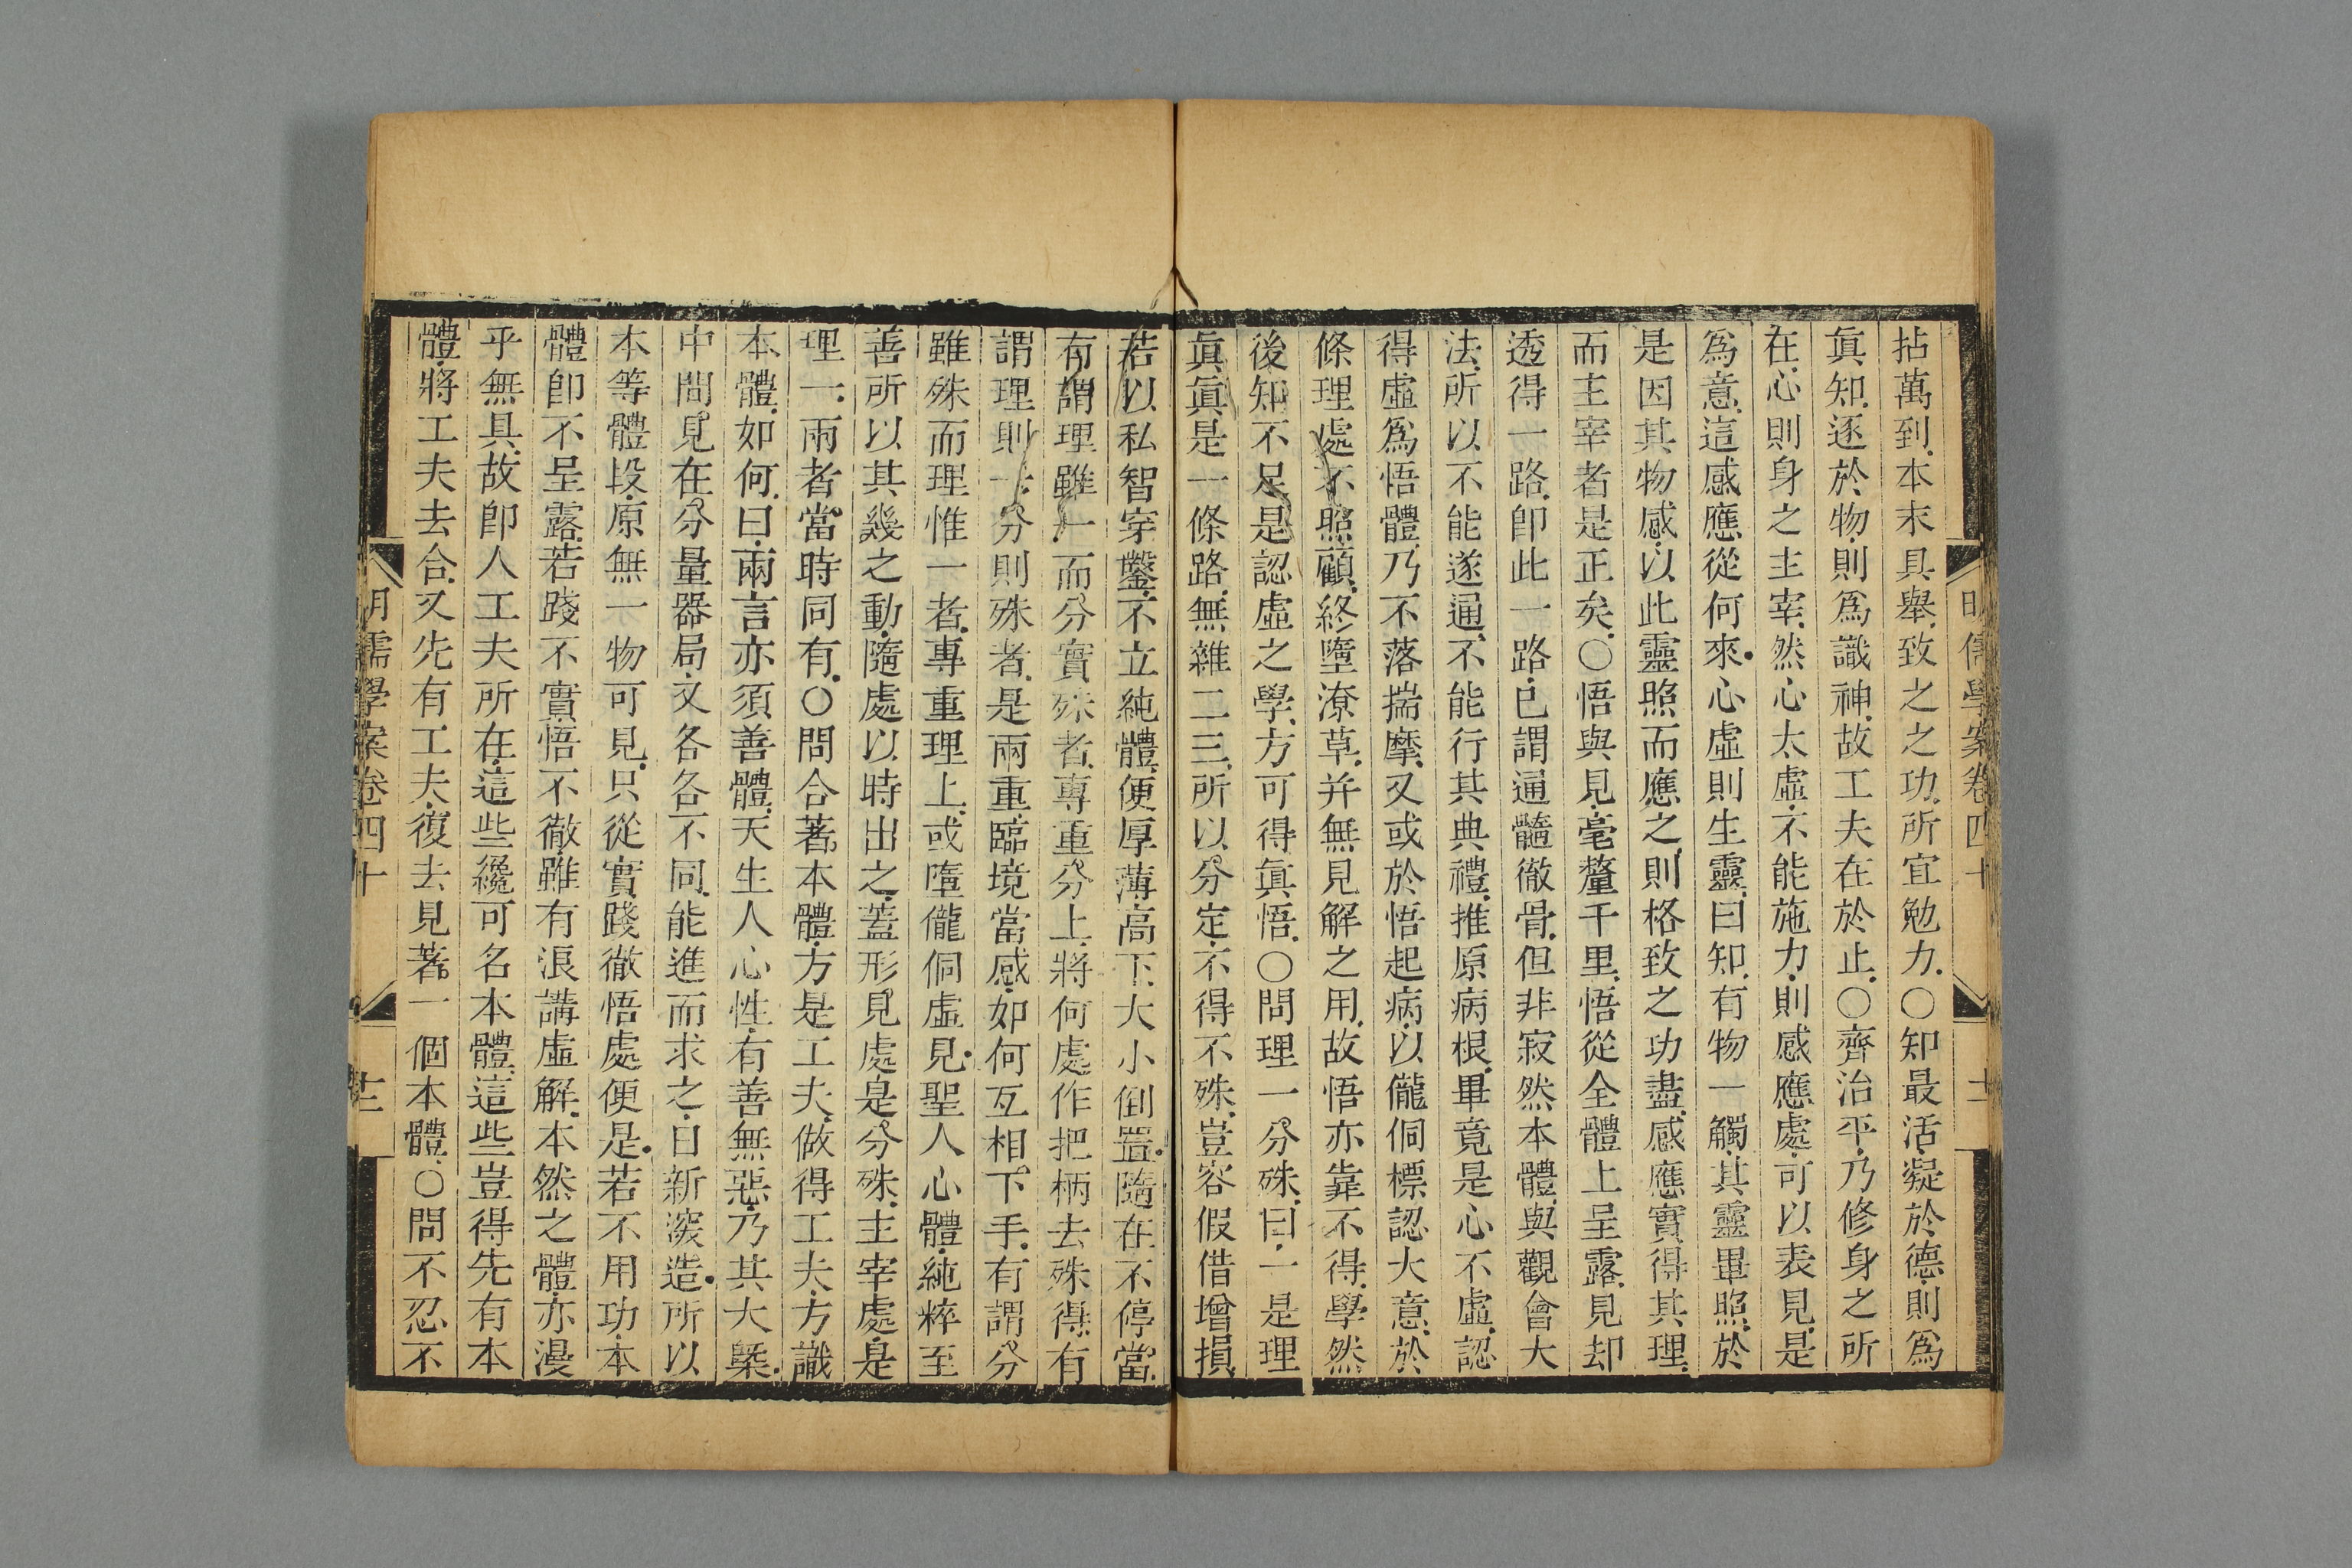 明儒學案卷四十
拈萬到.本末具舉.致之之功.所宜勉力.○知最活.凝於德.則爲
眞知.逐於物.則爲識神.故工夫在於止.○齊治平.乃修身之所
在.心則身之主宰.然心太虛.不能施力.則感應處.可以表見.是
爲意.這感應從何來.心虛則生靈.曰知.有物一觸.其靈畢照.於
是因其物感.以此靈照而應之.則格致之功盡.感應實得其理.
而主宰者是正矣.○悟與見.毫釐千里.悟從全體上呈露.見却
透得一路.卽此一路.已謂通髓徹骨.但非寂然本體.與觀會大
法.所以不能遂通.不能行其典禮.推原病根.畢竟是心不虛.認
得虛爲悟體.乃不落揣摩.又或於悟起病.以儱侗標認大意.於
條理處不照顧.終墮潦草.并無見解之用.故悟亦靠不得.學然
後知不足.是認虛之學.方可得眞悟.○問理一分殊.曰.一是理
眞眞是一條路.無雜二三.所以分定.不得不殊.豈容假借增損.
若以私智穿鑿.不立純體.便厚薄高下.大小倒置.隨在不停當.
有謂理雖一而分實殊者.專重分上.將何處作把柄去殊得.有
謂理則一.分則殊者.是兩重.臨境當感.如何互相下手.有謂分
雖殊而理惟一者.專重理上.或墮儱侗虛見.聖人心體.純粹至
善.所以其幾之動.隨處以時出之.蓋形見處是分殊.主宰處.是
理一.兩者.當時同有.○問合著本體.方是工夫.做得工夫.方識
本體.如何.曰.兩言亦須善體.天生人心性.有善無惡.乃其大槩.
中間見在分量器局.又各各不同.能進而求之.日新深造.所以
本等體段.原無一物可見.只從實踐徹悟處便是.若不用功.本
體卽不呈露.若踐不實.悟不徹.雖有浪講虛解.本然之體.亦漫
乎無具.故卽人工夫所在.這些纔可名本體.這些豈得先有本
體.將工夫去合.又先有工夫.復去見著一個本體.○問不忍不
明儒學案卷四十